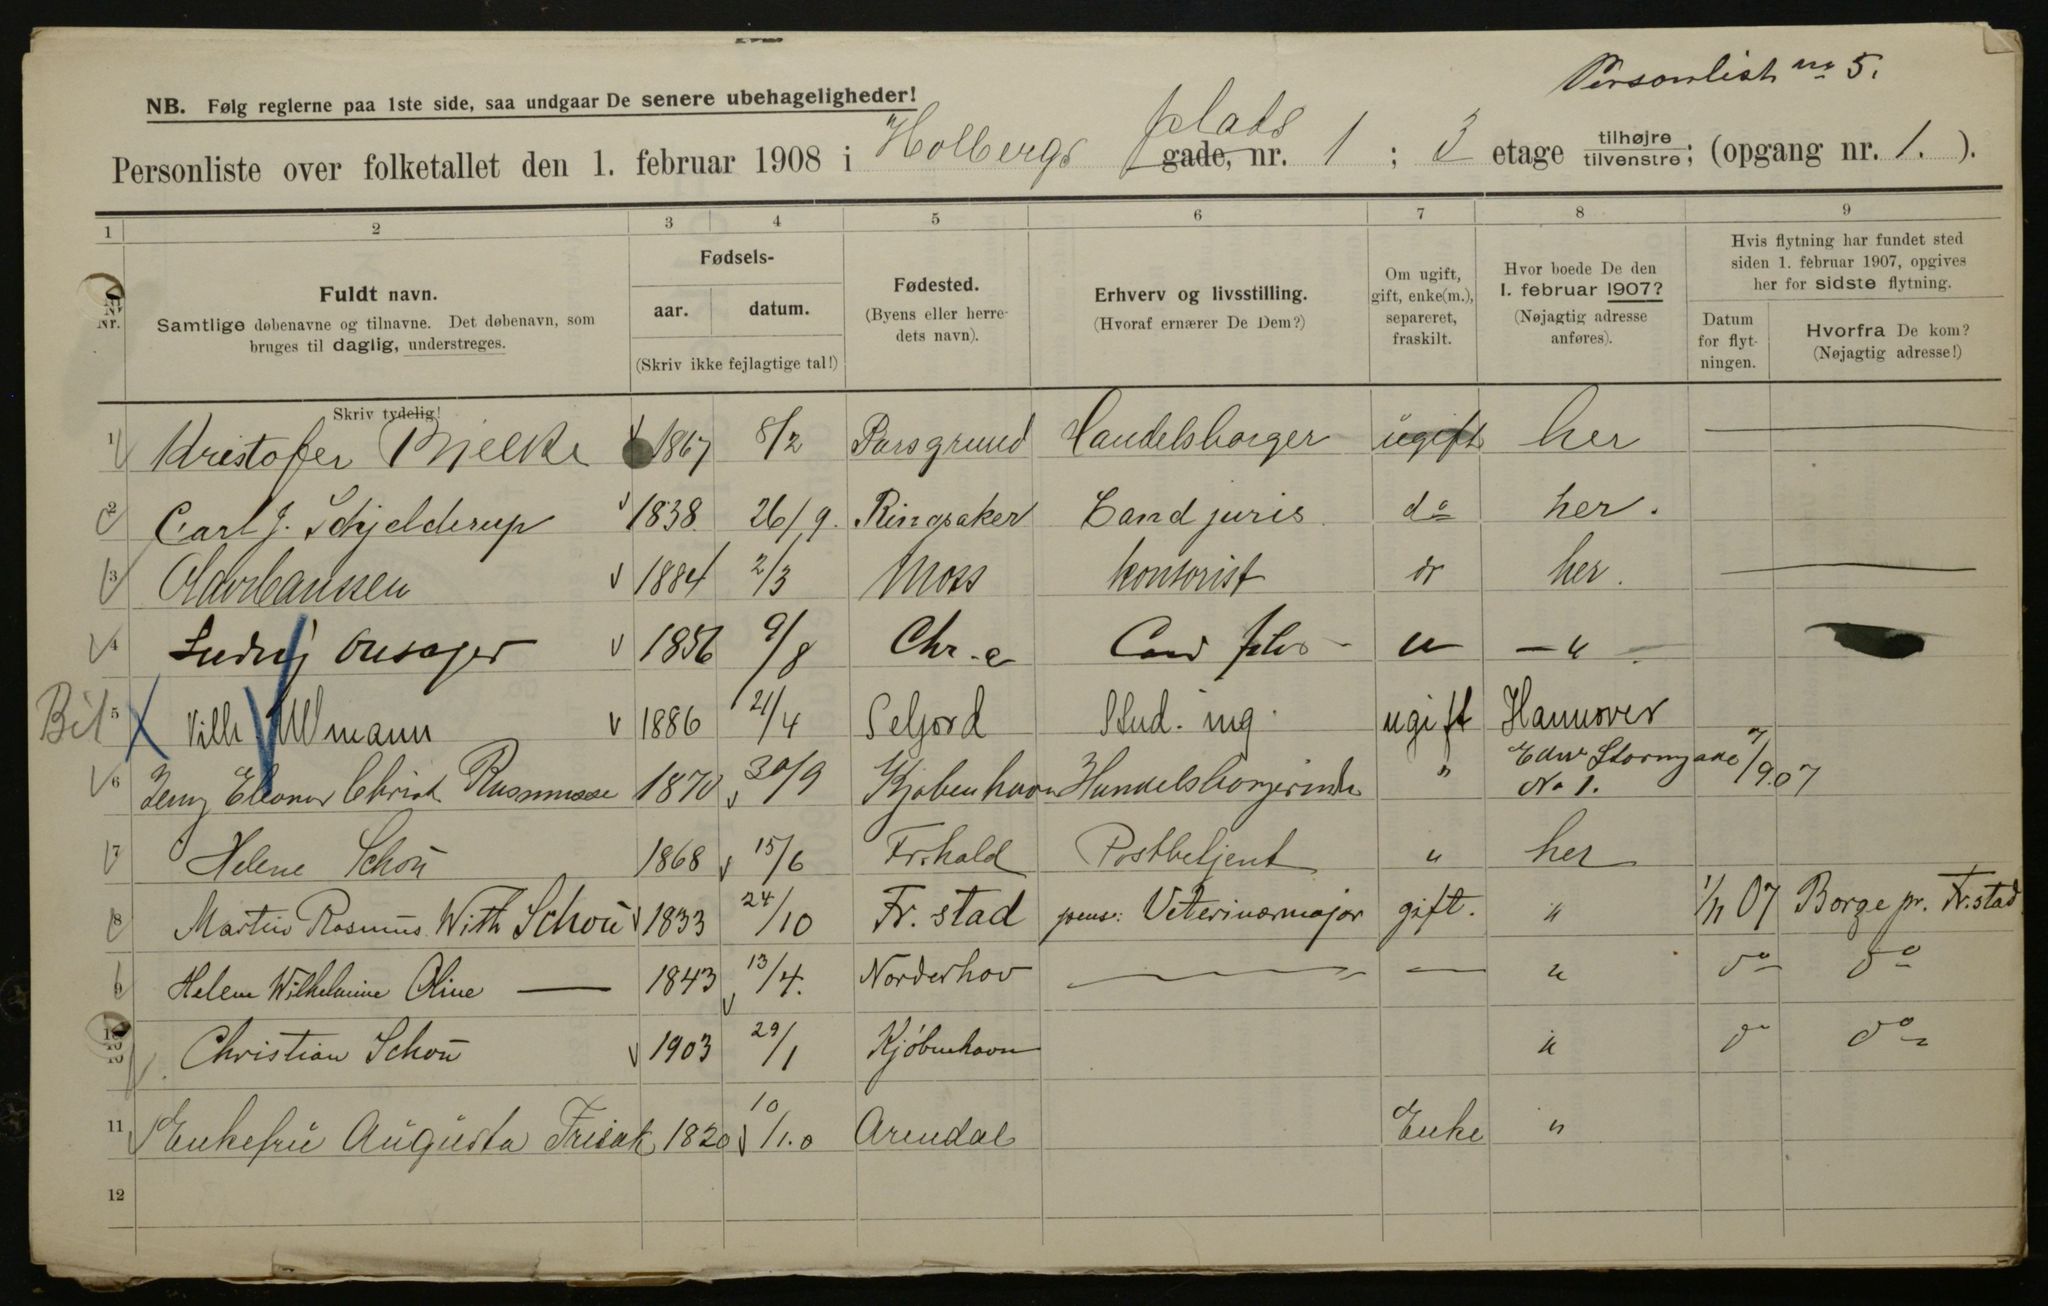 Personlist no 5.
NB. Følg reglerne paa 1ste side, saa undgaar De senere ubehageligheder!
Personliste over folketallet den 1. februar 1908 i Holbergs plads gade, nr. 1 ; 3 etage tilhøjre tilvenstre; (opgang nr. 1. ).
1 2 3 4 5 6 7 8 9
Nr.
Fuldt navn.
Samtlige døbenavne og tilnavne. Det døbenavn, som
bruges til daglig, understreges.
Skriv tydelig!
Fødsels-
aar. datum.
(Skriv ikke fejlagtige tal!)
Fødested.
(Byens eller herre-
dets navn).
Erhverv og livsstilling.
(Hvoraf ernærer De Dem?)
Om ugift,
gift, enke(m.),
separeret,
fraskilt.
Hvor boede De den
1. februar 1907?
(Nøjagtig adresse
anføres).
Hvis flytning har fundet sted
siden 1. februar 1907, opgives
her for sidste flytning.
Datum
for flyt-
ningen.
Hvorfra De kom?
(Nøjagtig adresse!)
1 Kristofer Bjelke 1867 8/2 Porsgrund Handelsborger ugift her
2 Carl J. Schjelderup 1838 26/9. Ringsaker Cand juris do her.
3 Olav Hanssen 1884 2/3 Moss Kontorist do her.
4 Ludvig Onsager 1856 9/8 Chr.a Cand philos — " — — " —
Bil X 5 Vilh Ullmann 1886 21/4 Seljord Stud. ing. ugift Hannover
6 Jenny Eleonor Christ Rasmusse 1870 30/9 Kjøbenhavn Handelsborgerinde " Edw Stormgade No 1. 7/9.07
7 Helene Schou 1868 15/6 Fr.hald Postbetjent " her
8 Martin Rasmus With Schou 1833 24/10 Fr. stad pens: Veterinærmajor gift. " 1/11 07 Borge pr. Fr.stad
9 Helene Wilhelmine Oline — 1843 13/4. Norderhov — " — — " do do
10 Christian Schou 1903 29/1 Kjøbenhavn " do do
11 Enkefru Augusta Frisak 1820 10/10 Arendal Enke "
12